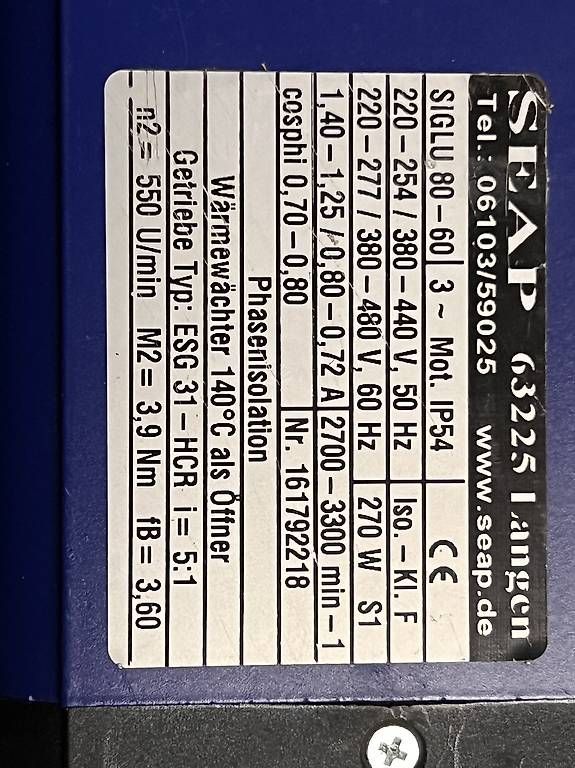 SEAP 63225 Langen
Tel.: 06103/59025 www.seap.de
SIGLU 80-60 3 ~ Mot. IP54 CE
220-254 / 380-440 V, 50 Hz Iso.-Kl. F
220-277 / 380-480 V, 60 Hz 270 W S1
1,40-1,25 / 0,80-0,72 A 2700-3300 min-1
cosphi 0,70-0,80 Nr. 161792218
Phasenisolation
Wärmewächter 140°C als Öffner
Getriebe Typ: ESG 31-HCR i= 5:1
n2= 550 U/min M2= 3,9 Nm fB= 3,60